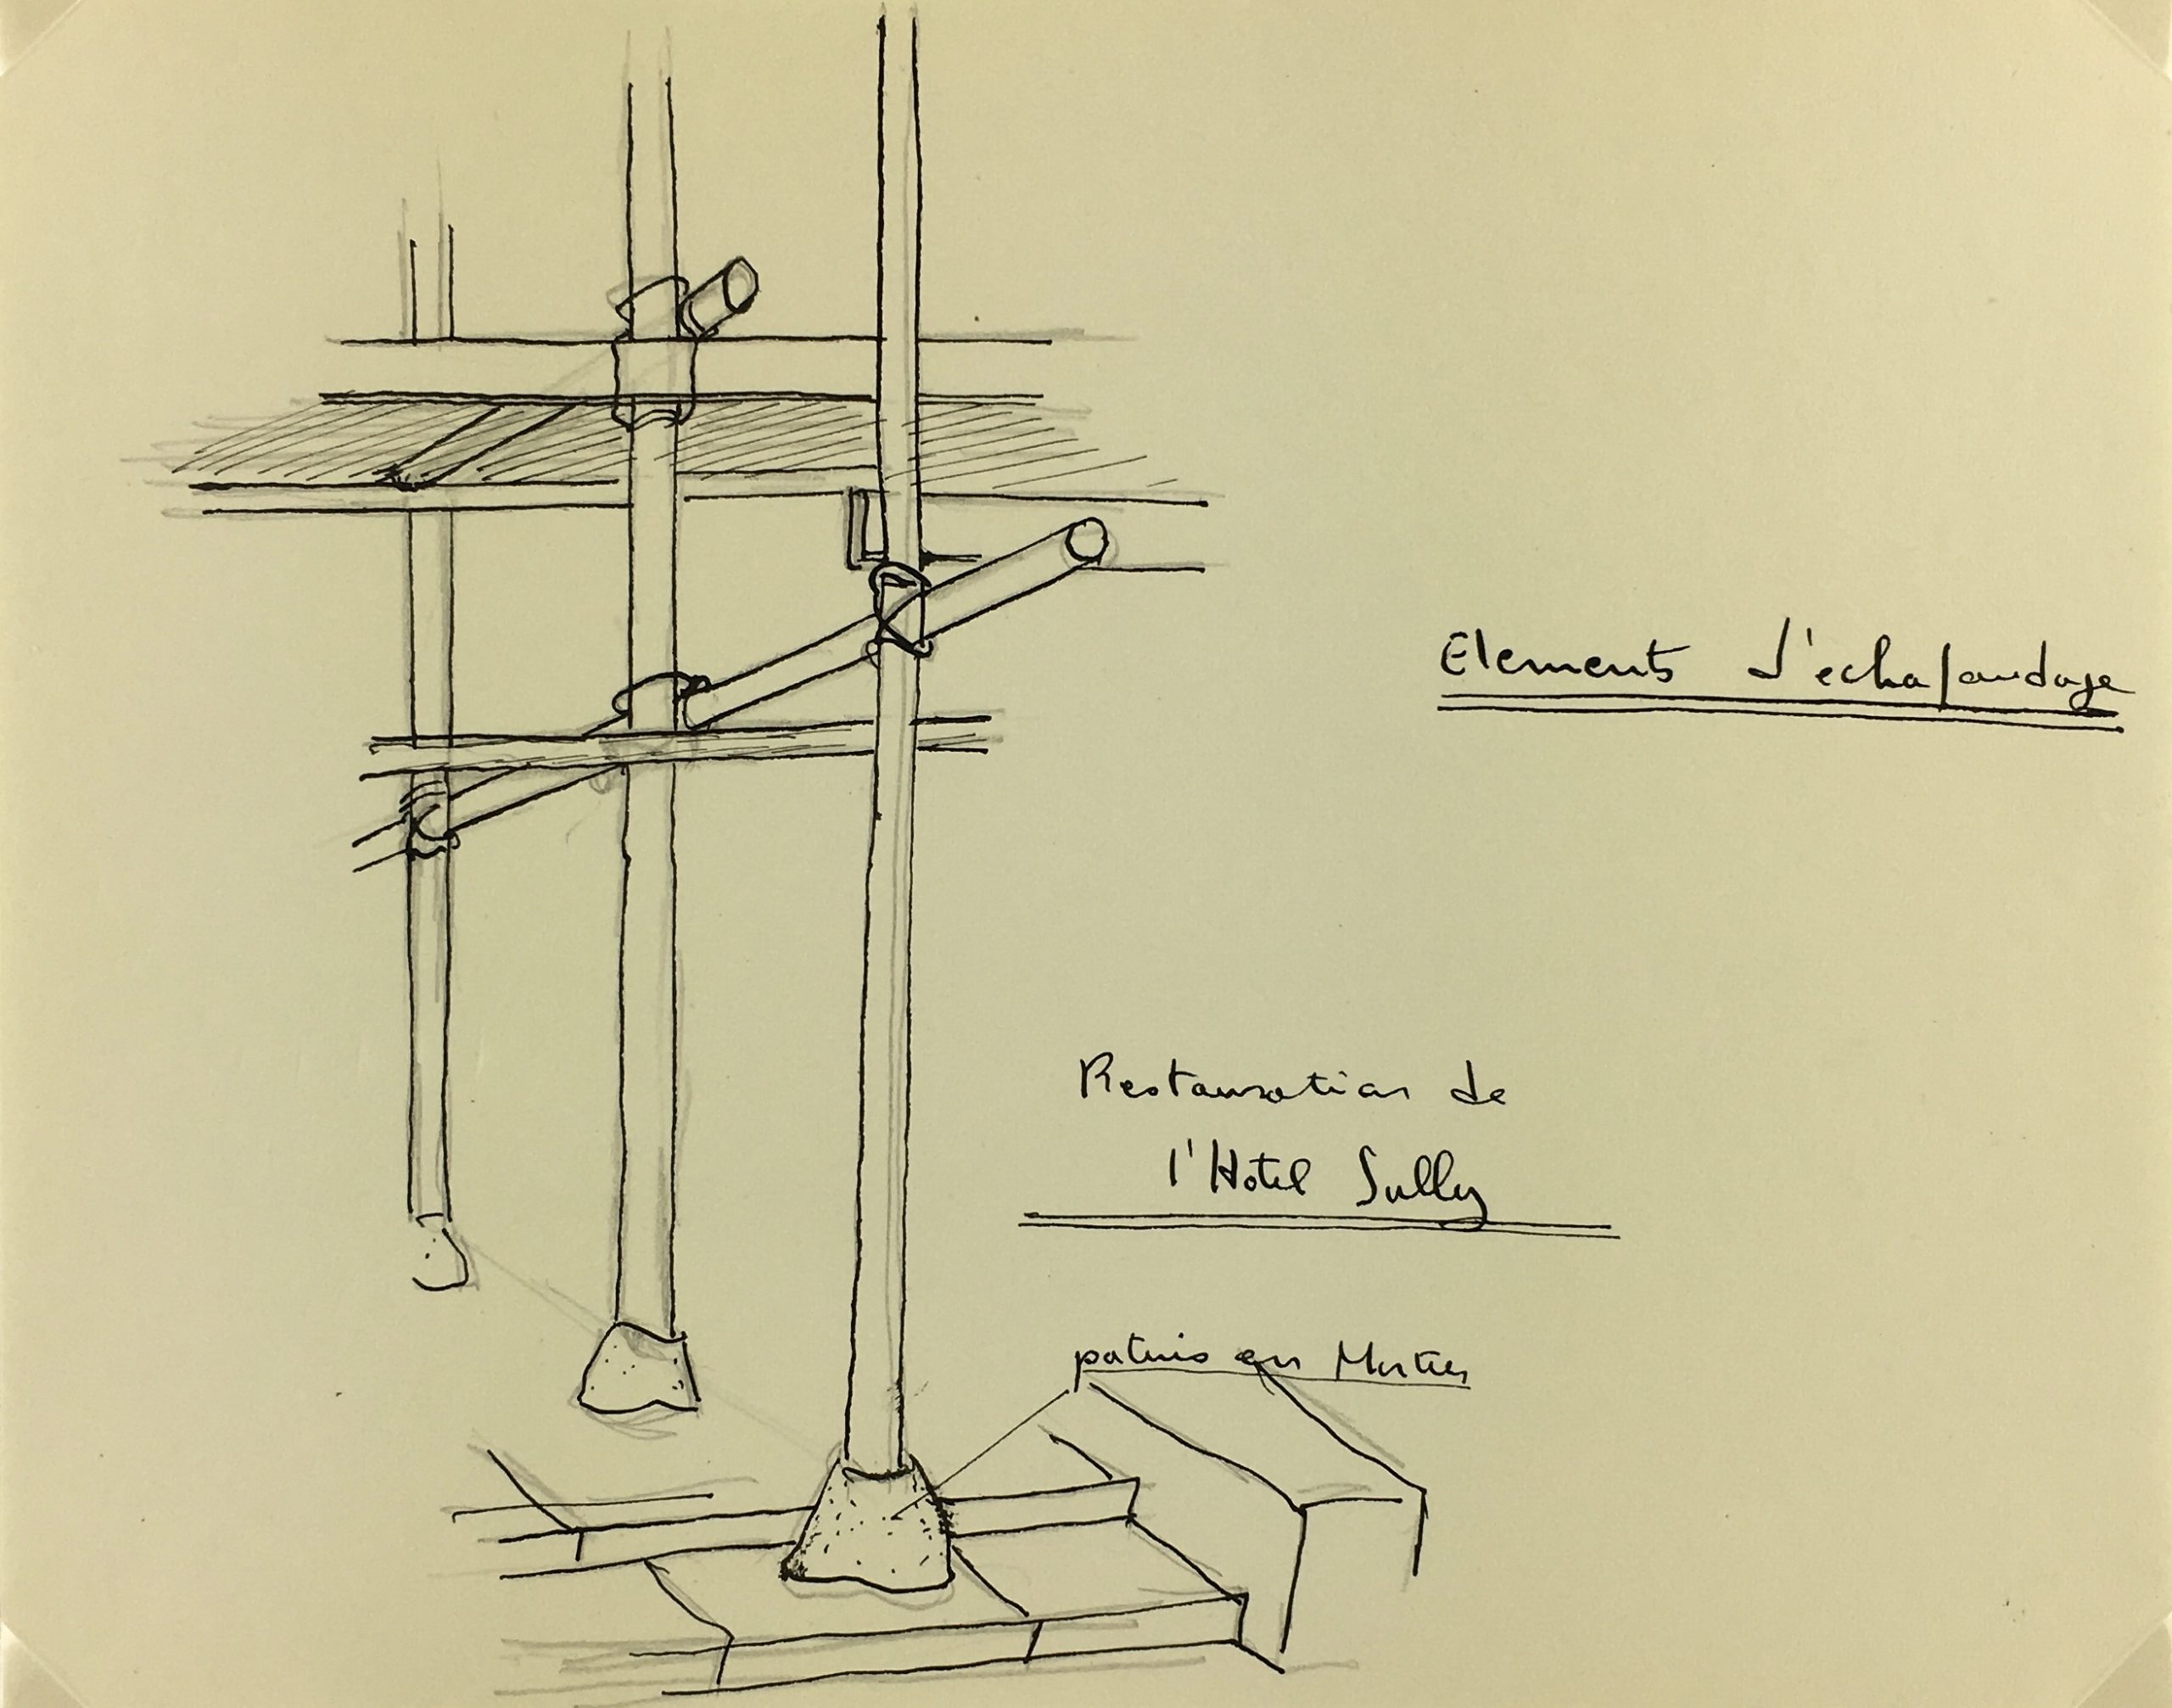 Elements d'echafaudage
Restauration de
l'Hotel Sully
patins en Mortier